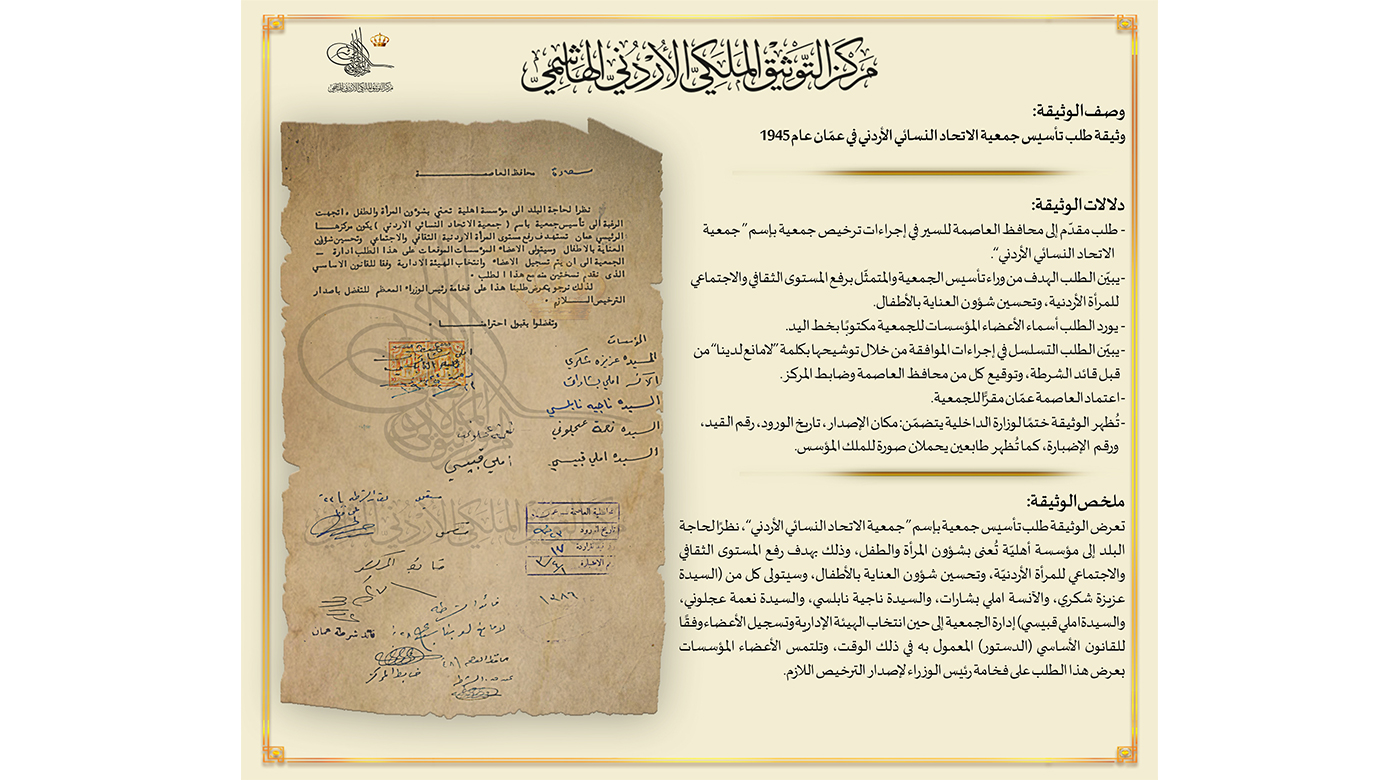 مَركَز التَّوثيق المَلَكيّ الأُردُنيّ الهَاشِميّ
مركز التوثيق الملكي الأردني الهاشمي
وصف الوثيقة:
وثيقة طلب تأسيس جمعية الاتحاد النسائي الأردني في عمّان عام 1945
دلالات الوثيقة:
- طلب مقدّم إلى محافظ العاصمة للسير في إجراءات ترخيص جمعية بإسم "جمعية
الاتحاد النسائي الأردني".
-يبيّن الطلب الهدف من وراء تأسيس الجمعية والمتمثّل برفع المستوى الثقافي والاجتماعي
للمرأة الأردنية، وتحسين شؤون العناية بالأطفال.
- يورد الطلب أسماء الأعضاء المؤسسات للجمعية مكتوبًا بخط اليد.
-يبيّن الطلب التسلسل في إجراءات الموافقة من خلال توشيحها بكلمة "لامانع لدينا" من
قبل قائد الشرطة، وتوقيع كل من محافظ العاصمة وضابط المركز.
- اعتماد العاصمة عمّان مقرًّا للجمعية.
-تُظهر الوثيقة ختمًا لوزارة الداخلية يتضمّن: مكان الإصدار، تاريخ الورود، رقم القيد،
ورقم الإضبارة، كما تُظهر طابعين يحملان صورة للملك المؤسس.
ملخص الوثيقة:
تعرض الوثيقة طلب تأسيس جمعية بإسم "جمعية الاتحاد النسائي الأردني"، نظرًا لحاجة
البلد إلى مؤسسة أهليّة تُعنى بشؤون المرأة والطفل، وذلك بهدف رفع المستوى الثقافي
والاجتماعي للمرأة الأردنيّة، وتحسين شؤون العناية بالأطفال، وسيتولى كل من (السيدة
عزيزة شكري، والآنسة املي بشارات، والسيدة ناجية نابلسي، والسيدة نعمة عجلوني،
والسيدة املي قبيسي) إدارة الجمعية إلى حين انتخاب الهيئة الإدارية وتسجيل الأعضاء وفقًا
للقانون الأساسي (الدستور) المعمول به في ذلك الوقت، وتلتمس الأعضاء المؤسسات
بعرض هذا الطلب على فخامة رئيس الوزراء لإصدار الترخيص اللازم.
سعادة محافظ العاصمة
نظرا لحاجة البلد الى مؤسسة اهلية تعني بشؤون المرأة والطفل ، اتجهت
الرغبة الى تأسيس جمعية باسم ( جمعية الاتحاد النسائي الاردني ) يكون مركزها
الرئيسي عمان تستهدف رفع مستوى المرأة الاردنية الثقافي والاجتماعي وتحسين شؤون
العناية بالاطفال وسيتولى الاعضاء المؤسسات الموقعات على هذا الطلب ادارة
الجمعية الى ان يتم تسجيل الاعضاء وانتخاب الهيئة الادارية وفقا للقانون الاساسي
الذى نقدم نسختين منه مع هذا الطلب ٠
لذلك نرجو بعرض طلبنا هذا على فخامة رئيس الوزراء المعظم للتفضل باصدار
الترخيص اللازم ٠
وتفضلوا بقبول احترامنا ٠
المؤسسات
السيدة عزيزه شكري
الآنسة املي بشارات
السيده ناجيه نابلسي
السيده نعمة عجلوني
السيده املي قبيسي
أملي قبيسي
ضابط المركز
١٢٨٦
قائد الشرطة
لا مانع لدينا
قائد شرطة عمان
ضابط المركز